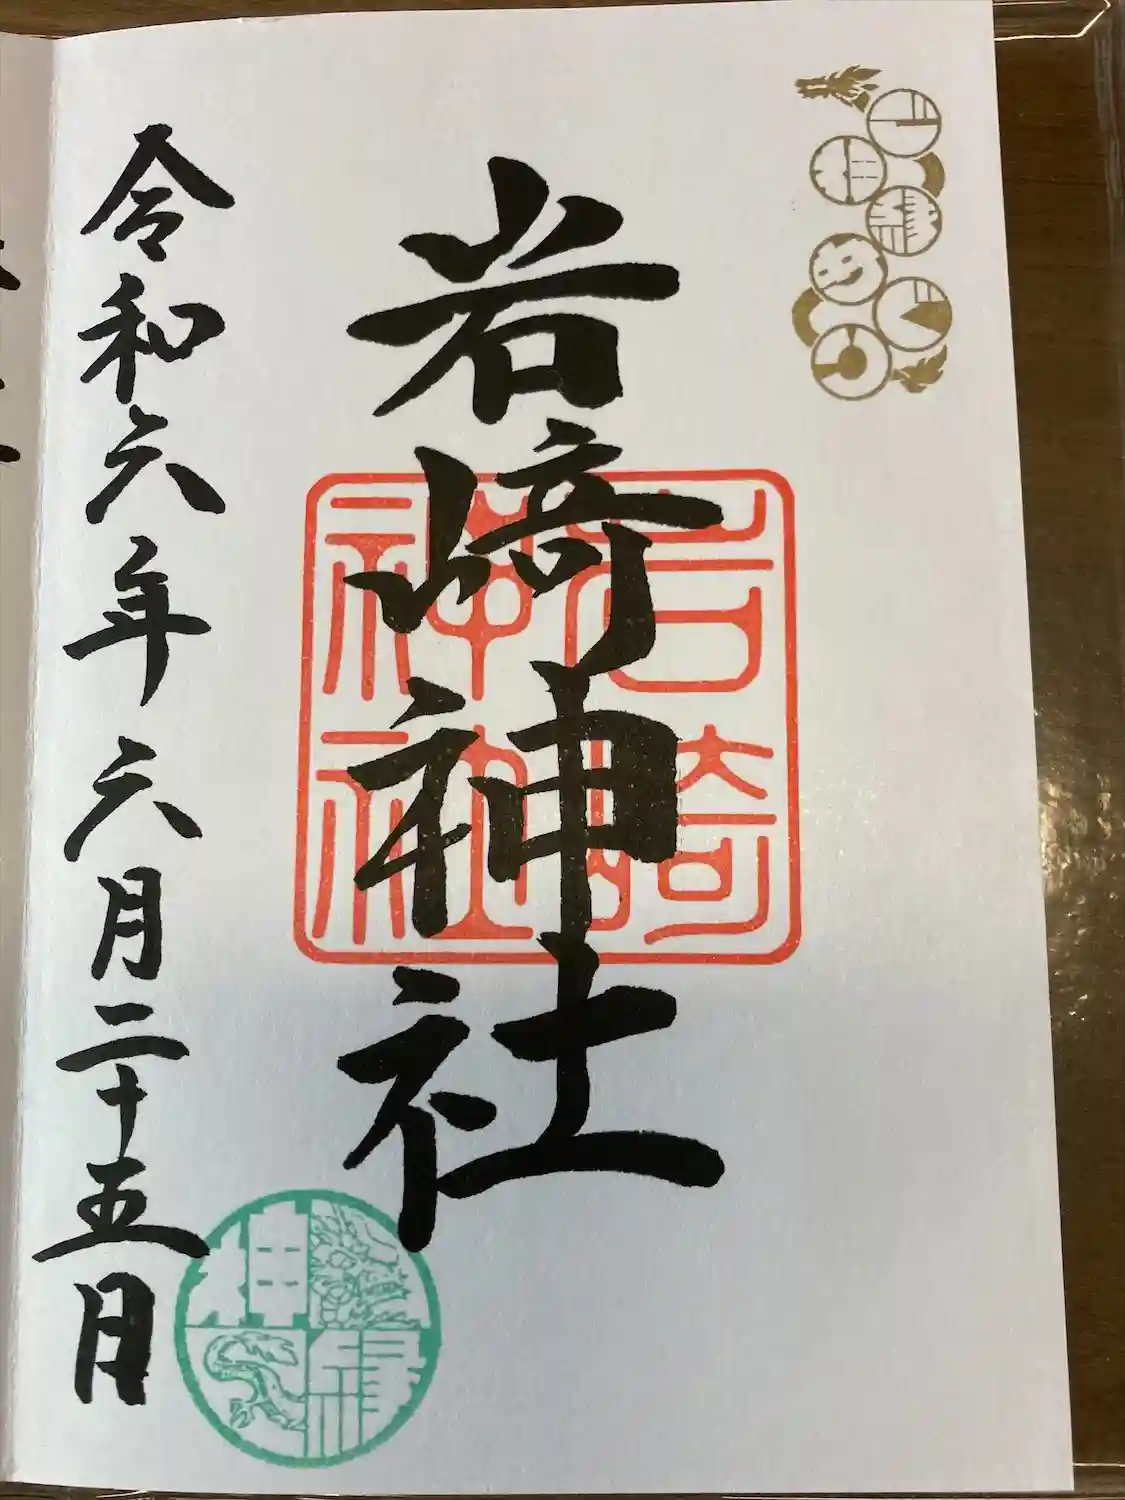 岩崎神社
岩崎
神社
令和六年六月二十五日